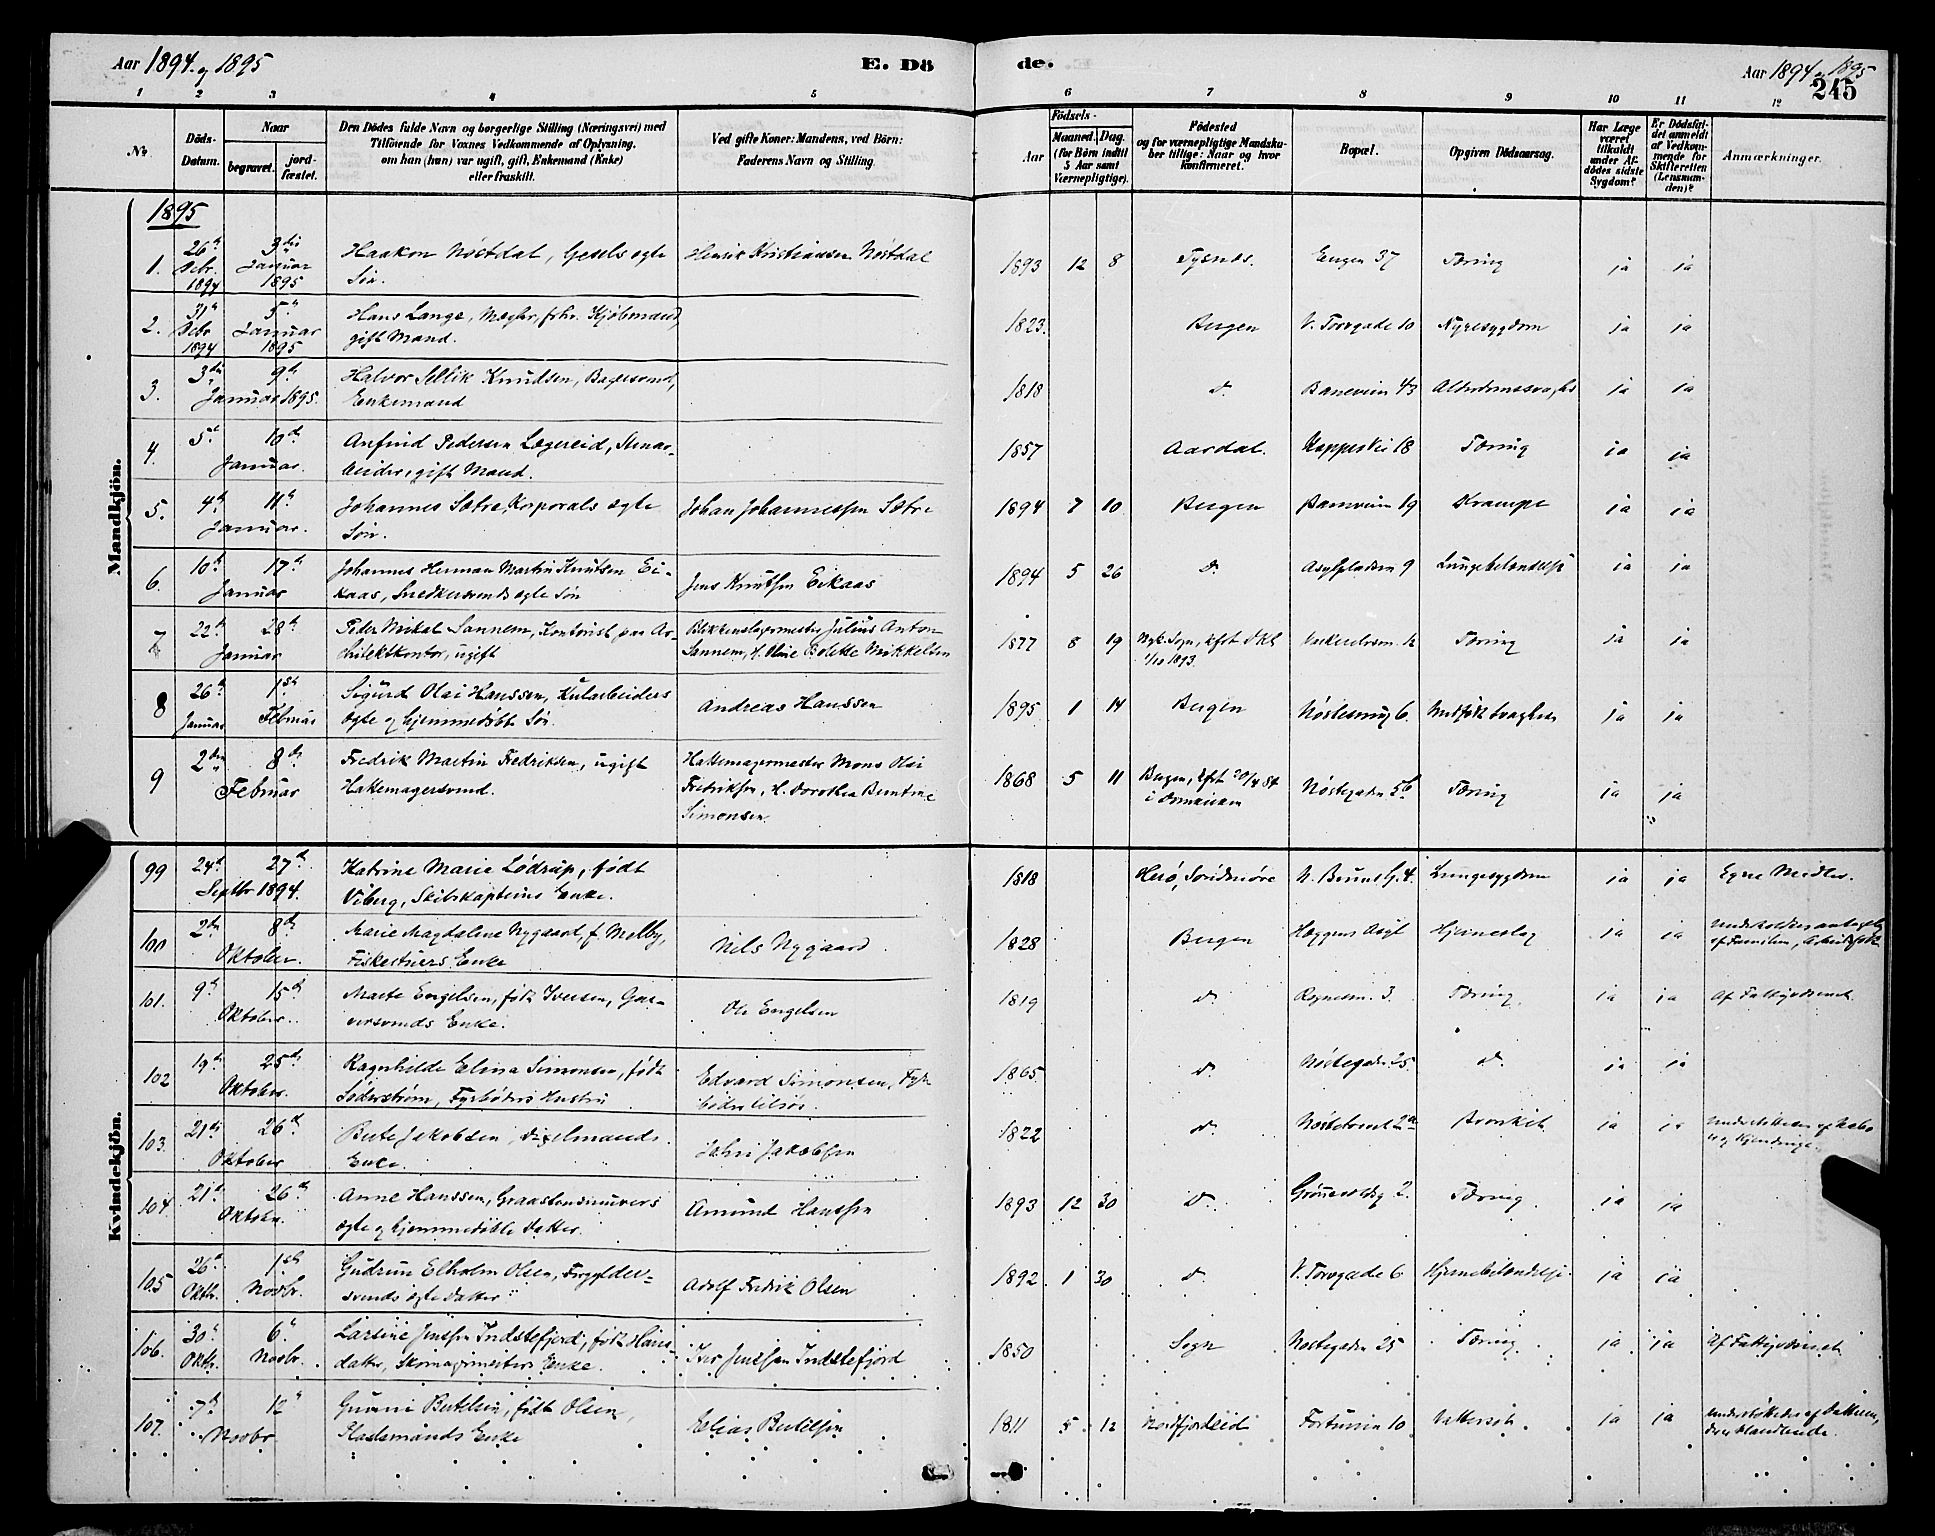 Aar 1894 og 1895
E. Dö
de.
Aar 1894 og 1895
245
1 2 3 4 5 6 7 8 9 10 11 12
No.
Döds-
Datum.
Naar
begravet.
jord-
fæstet.
Den Dödes fulde Navn og borgerlige Stilling (Næringsvei) med
Tilföiende for Voxnes Vedkommende af Oplysning.
om han (hun) var ugift, gift, Enkemand (Enke)
eller fraskilt.
Ved gifte Koner: Mandens, ved Börn:
Faderens Navn og Stilling.
Födsels-
Aar
Maaned.
Dag.
(for Börn indtil
5 Aar samt
Værnepligtige).
Födested
og for værnepligtige Mandska-
ber tillige: Naar og hvor
konfirmeret.
Bopæl.
Opgiven Dödsaarsag.
Har Læge
været
tilkaldt
under Af-
dödes sidste
Sygdom?
Er Dödsfal-
det anmeldt
af Vedkom-
mende for
Skifteretten
(Lensman-
den)?
Anmærkninger.
Mandkjön.
1895
1. 26de Decbr. 1894 3die Januar 1895 Haakon Nöstdal, Gesels ægte
Sön. Henrik Kristiansen Nöstdal 1893 12 8 Tysnes. Engen 37 Tæring ja ja
2. 31te Decbr 1894 5te Januar 1895 Hans Lange, Mægler, fhv. Kjöbmand,
gift Mand. 1823. Bergen V. Torvgade 10 Nyresygdom ja ja
3. 3die 9de Januar 1895. Halvor Sellik Knudsen, Bagersvend,
Enkemand 1818 do. Baneveien 43 Alderdomssvaghed ja ja
4. 5te 10de Januar. Arnfind Pedersen Lægereid, Stenar-
beider, gift Mand. 1857 Aardal. Kappeskei 18 Tæring ja ja
5. 4de 11te Januar. Johannes Sætre, Korporals ægte
Sön. Johan Johannessen Sætre 1894 7 10 Bergen 19 Krampe ja ja
6. 10de 17de Januar Johannes Herman Martin Knutsen Ei-
kaas, Snedkersvends ægte Sön Jens Knutsen Eikaas 1894 5 26 do. Asylpladsen 9 Lungebetændelse ja ja
7 22de 28de Januar Peder Mikal Sannem, Kontorist paa Ar-
kitektkontor, ugift Blikkenslagermester Julius Anton
Sannem, H. Oline Bolette Mikkelsen 1877 8 19 Nyk. Sogn, kfrt
1/10 1893. Tæring ja ja
8 26de Januar 1ste Februar Sigurd Olai Hanssen, Kularbeiders
ægte og hjemmedöbte Sön. Andreas Hanssen 1895 1 14 Bergen Nöstesmug 6. Medfödt Svaghed ja ja
9 2den 8de Februar Fredrik Martin Fredriksen, ugift
Hattemagersvend. Hattemagermester Mons Olai
Fredriksen, H. Dorothea Berntine
Simonsen. 1868 5 11 Bergen, kfrt 20/4 84
i Domkirken Nöstegaden 56 Tæring ja ja
Kvindekjön.
99 24de 27de Septbr 1894. Katrine Marie Lödrup, födt
Viberg, Skibskapteins Enke. 1818 Herö, Söndmöre N. 4. Lungesygdom ja ja Egne Midler.
100 2den 8de Oktober. Marie Magdalene Nygaard, f. Melby,
Enke Nils Nygaard 1828 Bergen Hæggens Asyl Hjerneslag ja ja
af Familien,
101. 9de 15de Oktober. Marte Engelsen, född Iversen, Gar-
versvends Enke. Ole Engelsen 1819 do. 3. Tæring ja ja Af Fattigvæsenet.
102 19de 25de Oktober. Ragnhilde Elina Simonsen, född
Söderström, Fyrböders Hustru Edvard Simonsen, Fyr-
böder tilsös. 1865. do. Nöstegaden 25 do ja ja
103. 21de 26de Oktober Berte Jakobsen,
Enke. John Jakobsen 1822 do. ja ja
104. 21de 26de Oktober. Anne Hanssen, Graastensmurers
ægte og hjemmedöbte Datter. Amund Hanssen 1893 12 30 do. 2. Tæring. ja ja
105 26de Oktbr. 1ste Novbr. Gudrun Elholm Olsen, Forgylder-
svends ægte Datter Adolf Fredrik Olsen 1892 1 30 do. V. Torvgade 6 Hjernebetændelse. ja ja
106. 30te Oktbr. 6te Novbr. Larsine Jenssen Indstefjord, född Hans-
datter, Skomagermesters Enke. Iver Jenssen Indstefjord 1850 Sogn Nöstegaden 25 Tæring ja ja Af Fattigvæsenet
107. 7de 12te Novbr. Gurine Bertelsen, född Olsen,
Enke Elias Bertelsen 1811 5 12 Nordfjordeid Fortunen 10 Vattersot ja ja Understöttedes af Datteren,